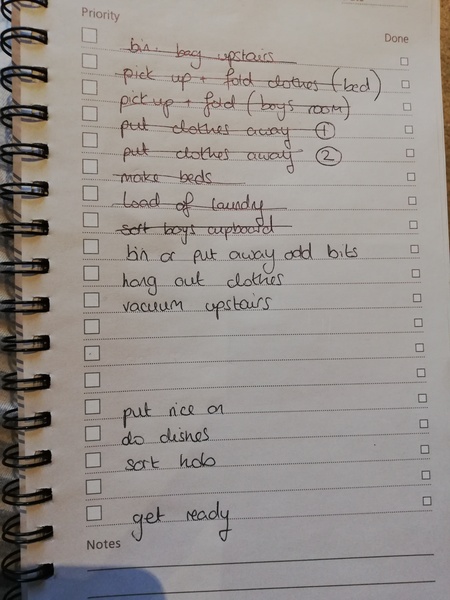 Priority
Done
bin bag upstairs
pick up + fold clothes (bed)
pick up + fold (boys room)
put clothes away 1
put clothes away 2
make beds
Load of laundry
sort boys cupboard
bin or put away odd bits
hang out clothes
vacuum upstairs
put rice on
do dishes
sort hob
get ready
Notes